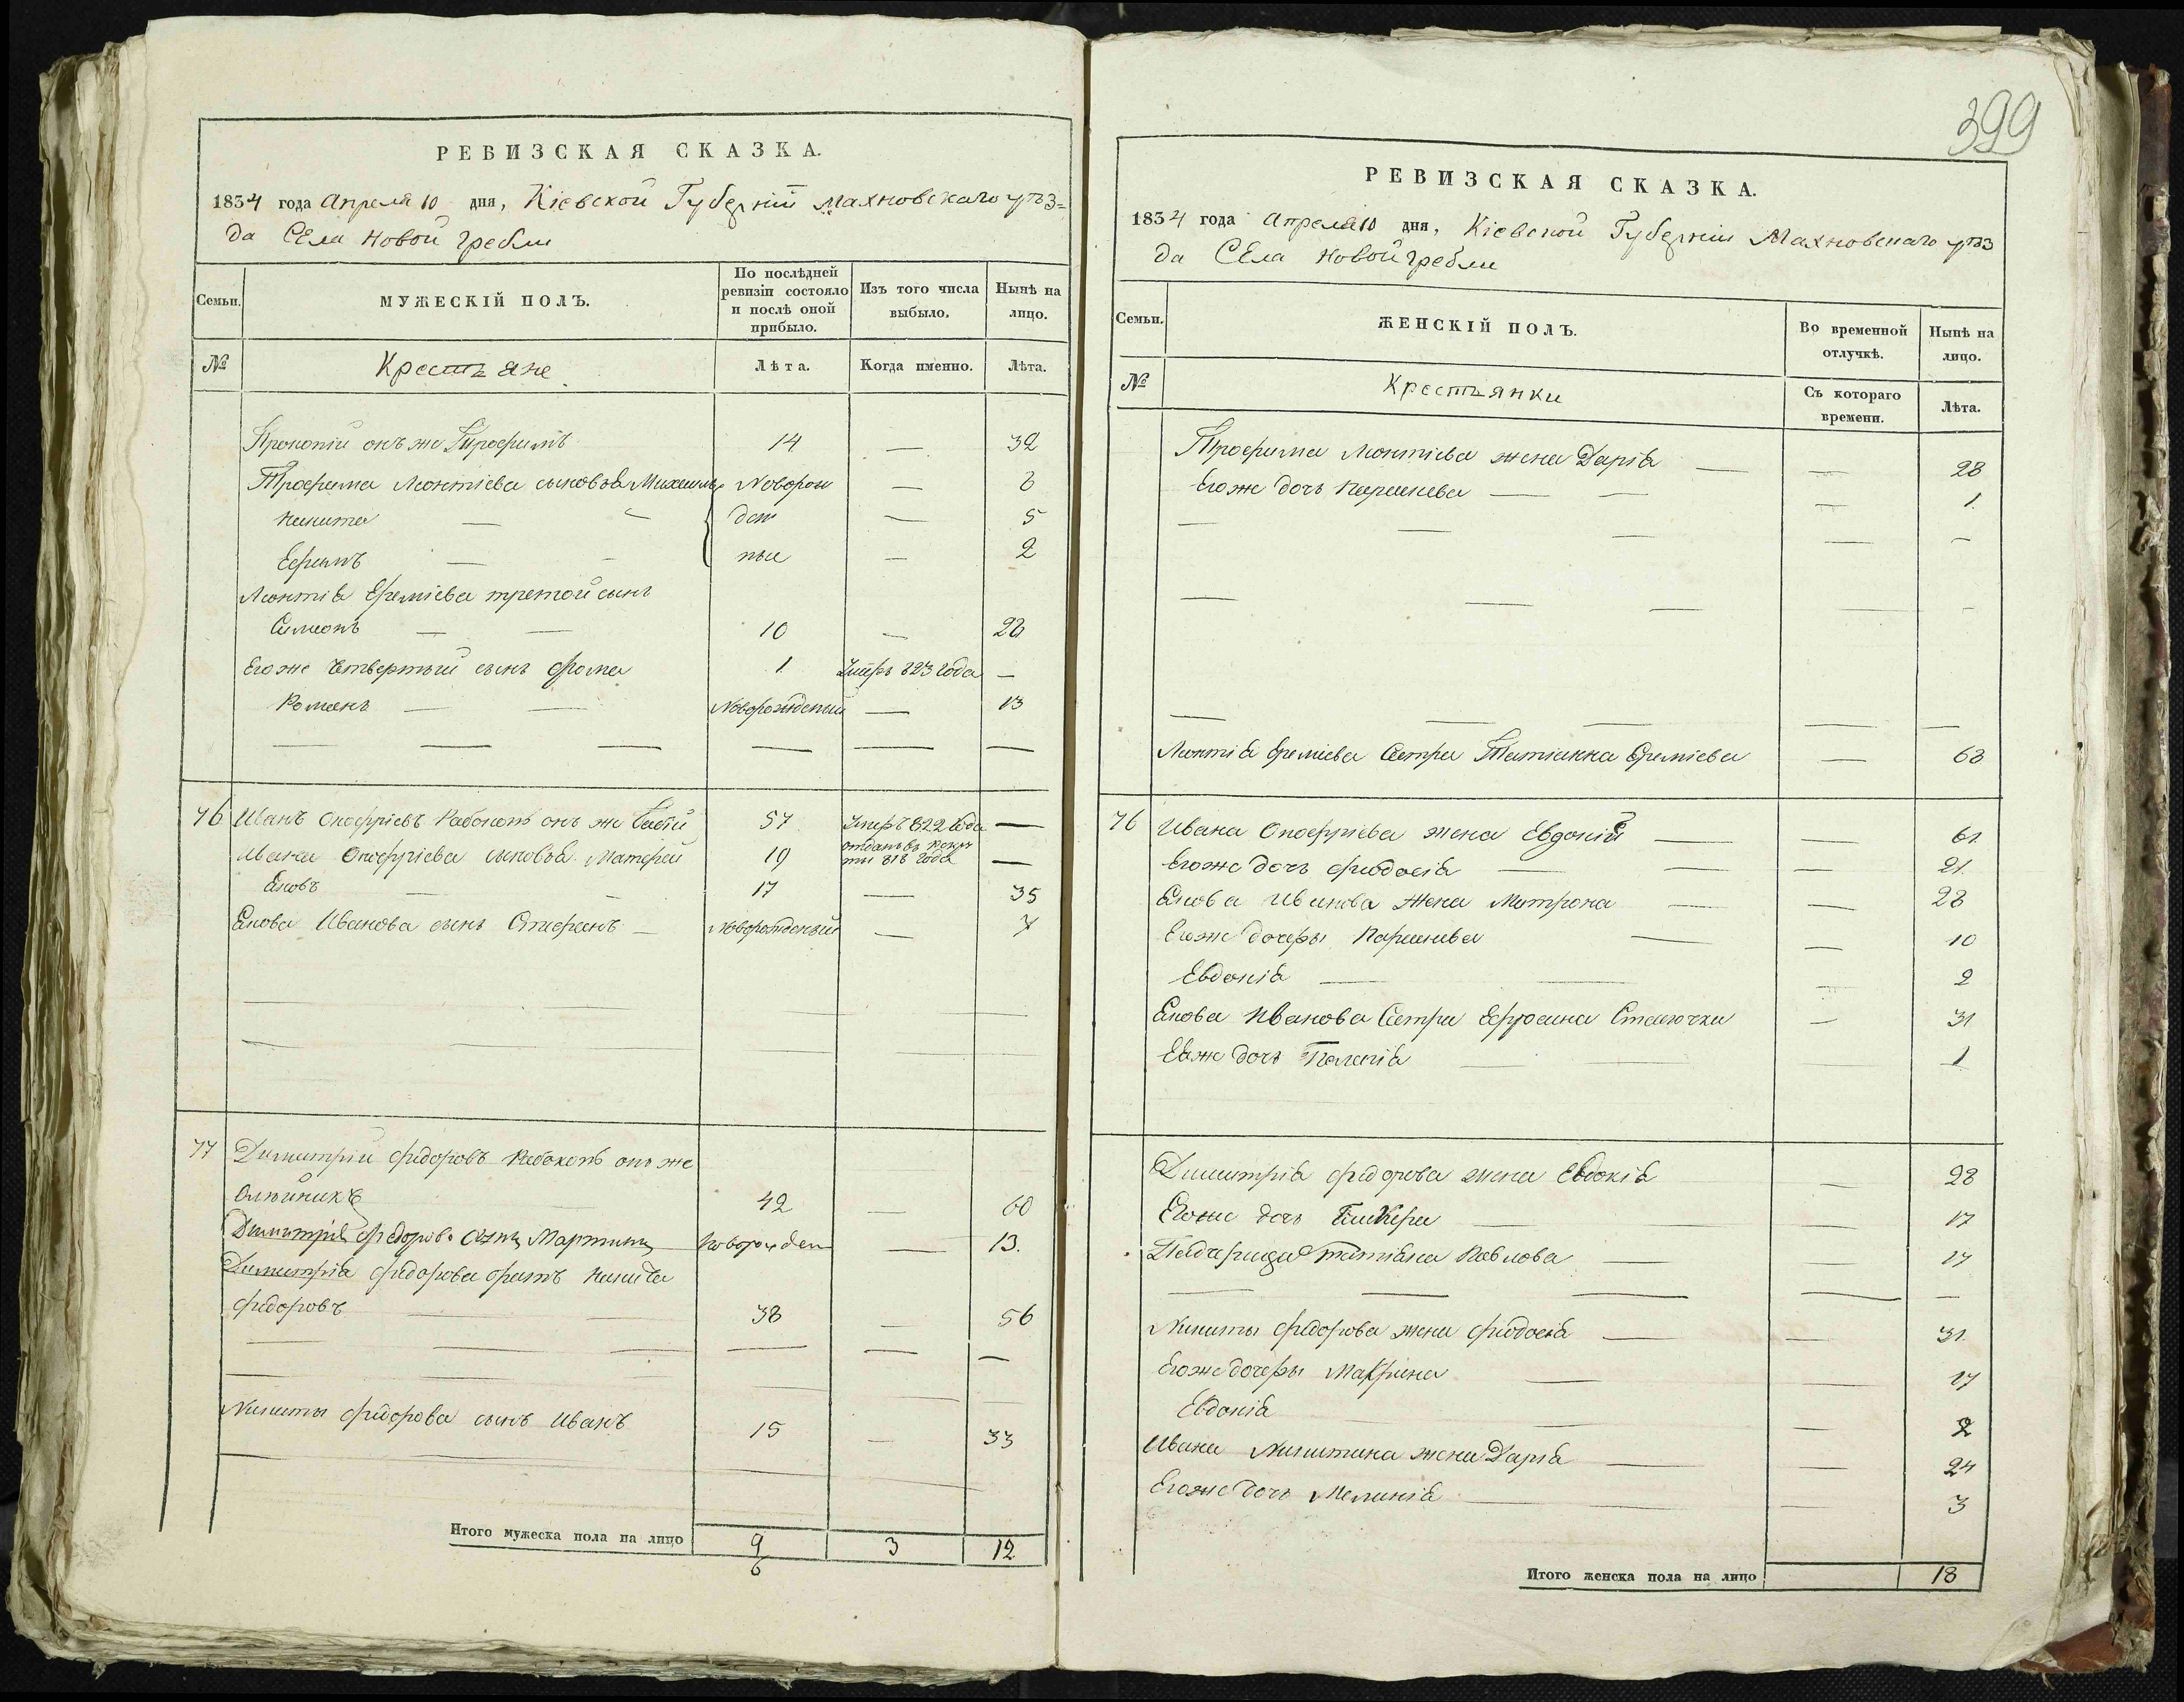 РЕВИЗСКАЯ СКАЗКА.
1834 года Апреля 10 дня, Кіевской Губерніи Махновскаго уѣз=
да Села Новой Гребли
Семьи.
МУЖЕСКІЙ ПОЛЪ.
По послѣдней ревизіи состояло и послѣ оной прибыло.
Изъ того числа выбыло.
Нынѣ на лицо.
№
Крестьяне
Лѣта.
Когда именно.
Лѣта.
Прокопій онъ же Трофимъ 14 — 32
Трофима Леонтіева сыновья Михаилъ Новорож — 6
Никита — — ден — 5
Ефимъ — — ные — 2
Леонтія Еремѣева третой сынъ
Симеонъ — — 10 — 28
Его же четвертый сынъ Фома 1 Умеръ 823 года —
Романъ — — Новорожденый — 13
— — — — — —
76 Иванъ Онофріевъ онъ же 57 Умеръ 822 года —
Ивана Онофріева сыновья Матфей 19 отданъ въ рекру ты 818 года —
Яковъ — — 17 — 35
Якова Иванова сынъ Стефанъ — Новорожденый — 7
77 Димитрій Федоровъ онъ же
Олѣйникъ 42 — 60
Димитрія Федорова сынъ Мартинъ Новорожден — 13.
Димитрія Федорова братъ Никита
Федоровъ — — 38 — 56
— — — — — —
Никиты Федорова сынъ Иванъ 15 — 33
Итого мужеска пола на лицо 9 3 12
6
399
РЕВИЗСКАЯ СКАЗКА.
1834 года Апреля 10 дня, Кіевской Губерніи Махновскаго уѣз
да Села Новой Гребли
Семьи.
ЖЕНСКІЙ ПОЛЪ.
Во временной отлучкѣ.
Нынѣ на лицо.
№
Крестьянки
Съ котораго времени.
Лѣта.
Трофима Леонтіева жена Дарія — — 28
Его же дочь Параскева — — — 1.
— — — — —
— — — — —
— — — — —
Леонтія Еремѣева сестра Татіанна Еремѣева — 63
76 Ивана Онофріева жена Евдокія — — — 61.
Его же дочь Феодосія — — — 21.
Якова Иванова жена Матрона — — 28
Его же дочеры Параскева — — 10
Евдокія — — — 2
Якова Иванова сестра Ефросина — 31
Ея же дочь Пелагія — — — 1
Димитрія Федорова жена Евдокія — 28
Его же дочь — — 17
Падчерица Татіана Павлова — — 17
— — — — —
Никиты Федорова жена Феодосія — — 31.
Его же дочеры Макрина — — 17
Евдокія — — 2
Ивана Никитина жена Дарія — — 24
Его же дочь Меланія — — — 3
Итого женска пола на лицо 18